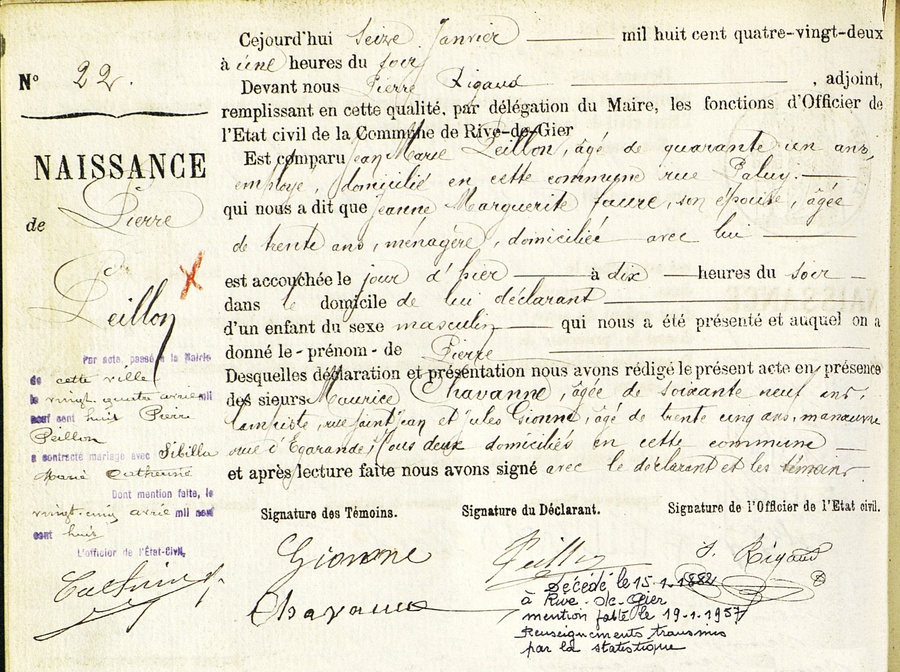 N° 22.
NAISSANCE
de Pierre
Peillon
X
Par acte, passé à la Mairie
de cette ville
le vingt quatre avril mil
neuf cent huit Pierre
Peillon
a contracté mariage avec Sibilla
Marie Catherine
Dont mention faite, le
vingt-cinq avril mil neuf
cent huit
L'officier de l'État-Civil,
Cejourd'hui Seize Janvier mil huit cent quatre-vingt-deux
à une heures du soir
Devant nous Pierre Rigaud , adjoint,
remplissant en cette qualité, par délégation du Maire, les fonctions d'Officier de
l'Etat civil de la Commune de Rive-de-Gier
Est comparu Jean Marie Peillon, âgé de quarante un ans,
employé, domicilié en cette commune rue Paluy.
qui nous a dit que Jeanne Marguerite Faure, son épouse, âgée
de trente ans, ménagère, domiciliée avec lui
est accouchée le jour d'hier à dix heures du soir
dans le domicile de lui déclarant
d'un enfant du sexe masculin qui nous a été présenté et auquel on a
donné le - prénom - de Pierre
Desquelles déclaration et présentation nous avons rédigé le présent acte en présence
des sieurs Maurice Chavanne, âgée de soixante neuf ans,
lampiste, rue Saint Jean et Jules Gionne, âgé de trente cinq ans, manœuvre
rue d'Egarande, tous deux domiciliés en cette commune
et après lecture faite nous avons signé avec le déclarant et les témoins
Signature des Témoins. Signature du Déclarant. Signature de l'Officier de l'Etat civil.
Gionne Peillon P. Rigaud
Chavanne
Décédé le 15-1-1882
à Rive-de-Gier
mention faite le 19-1-1957
Renseignements transmis
par la statistique